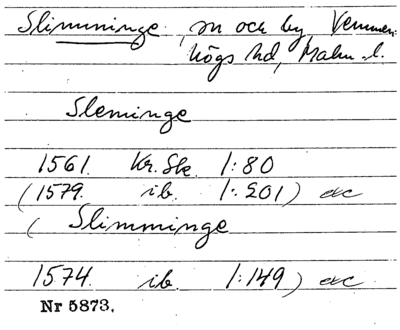 Slimminge, sn och by, Vemmen-
högs hd, Malm. l.
Sleminge
1561. Kr. Sk. 1:80
(1579. ib. 1:201) etc
( Slimminge
1574. ib. 1:149) etc
Nr 5873.